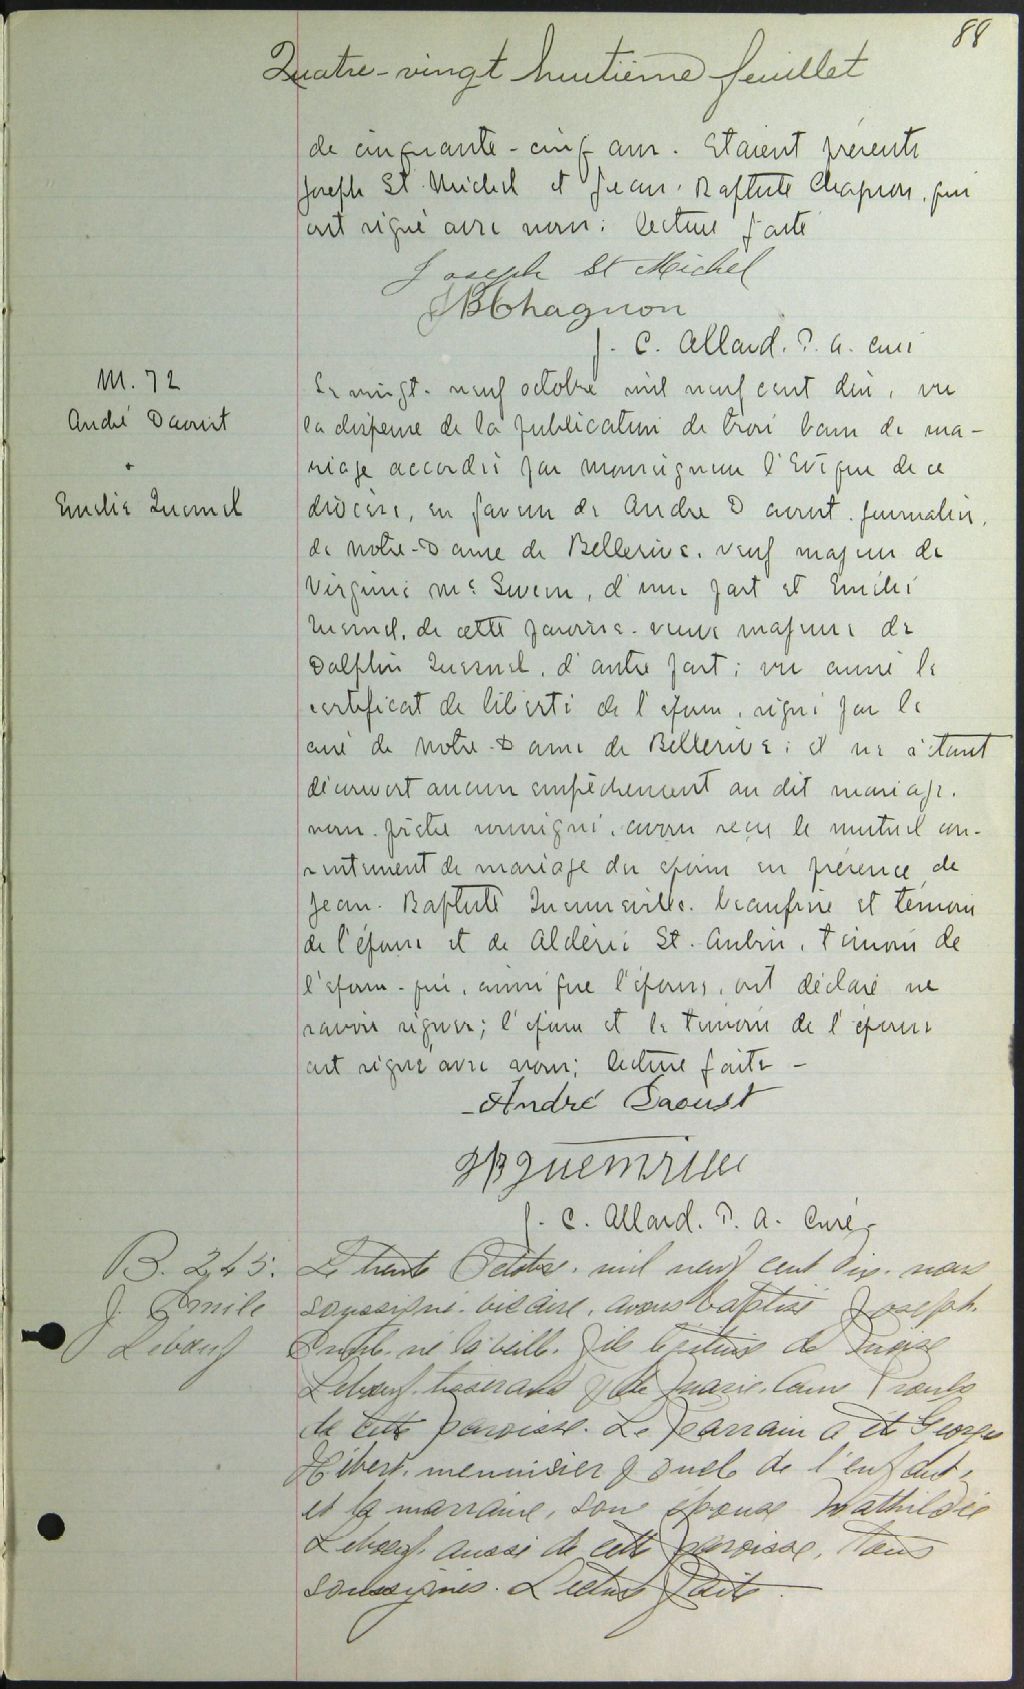 88
Quatre-vingt huitième feuillet
de cinquante-cinq ans. Etaient présents
Joseph St. Michel et Jean-Baptiste Chagnon, qui
ont signé avec nous: lecture faite
Joseph St Michel
JBChagnon
J. C. Allard. P. A. curé
M. 72
André Daoust
+
Emelie Quesnel
Le vingt-neuf octobre mil neuf cent dix, vu
la dispense de la publication de trois bans de ma-
riage accordée par monseigneur l'Evêque de ce
diocèse, en faveur de André Daoust, journalier,
de Notre-Dame de Bellerive, veuf majeur de
Virginie, d'une part et Emélie
Quesnel, de cette paroisse, veuve majeure de
Dolphin Quesnel, d'autre part; vu aussi le
certificat de liberté de l'époux, signé par le
curé de Notre-Dame de Bellerive; et ne s'étant
découvert aucun empêchement au dit mariage,
nous, prêtre soussigné, avons reçu le mutuel con-
sentement de mariage des époux en présence de
Jean-Baptiste Quenneville, beaufrère et témoin
de l'épouse et de Aldéric St. Aubin, témoin de
l'époux, qui, ainsi que l'épouse, ont déclaré ne
savoir signer; l'époux et le témoin de l'épouse
ont signé avec nous; lecture faite -
André Daoust
JBQuenneville
J. C. Allard. P. A. Curé
B. 245.
J. Emile
Lebœuf
Le trente Octobre mil neuf cent dix, nous
soussigné vicaire, avons baptisé Joseph
Emile, né la veille, fils légitime de
Lebœuf, tisserand & de Marie
de cette paroisse. Le parrain a été Georges
Hébert, menuisier & oncle de l'enfant,
et la marraine, son épouse Mathildée
Lebœuf, aussi de cette paroisse, tous
soussignés. Lecture faite.